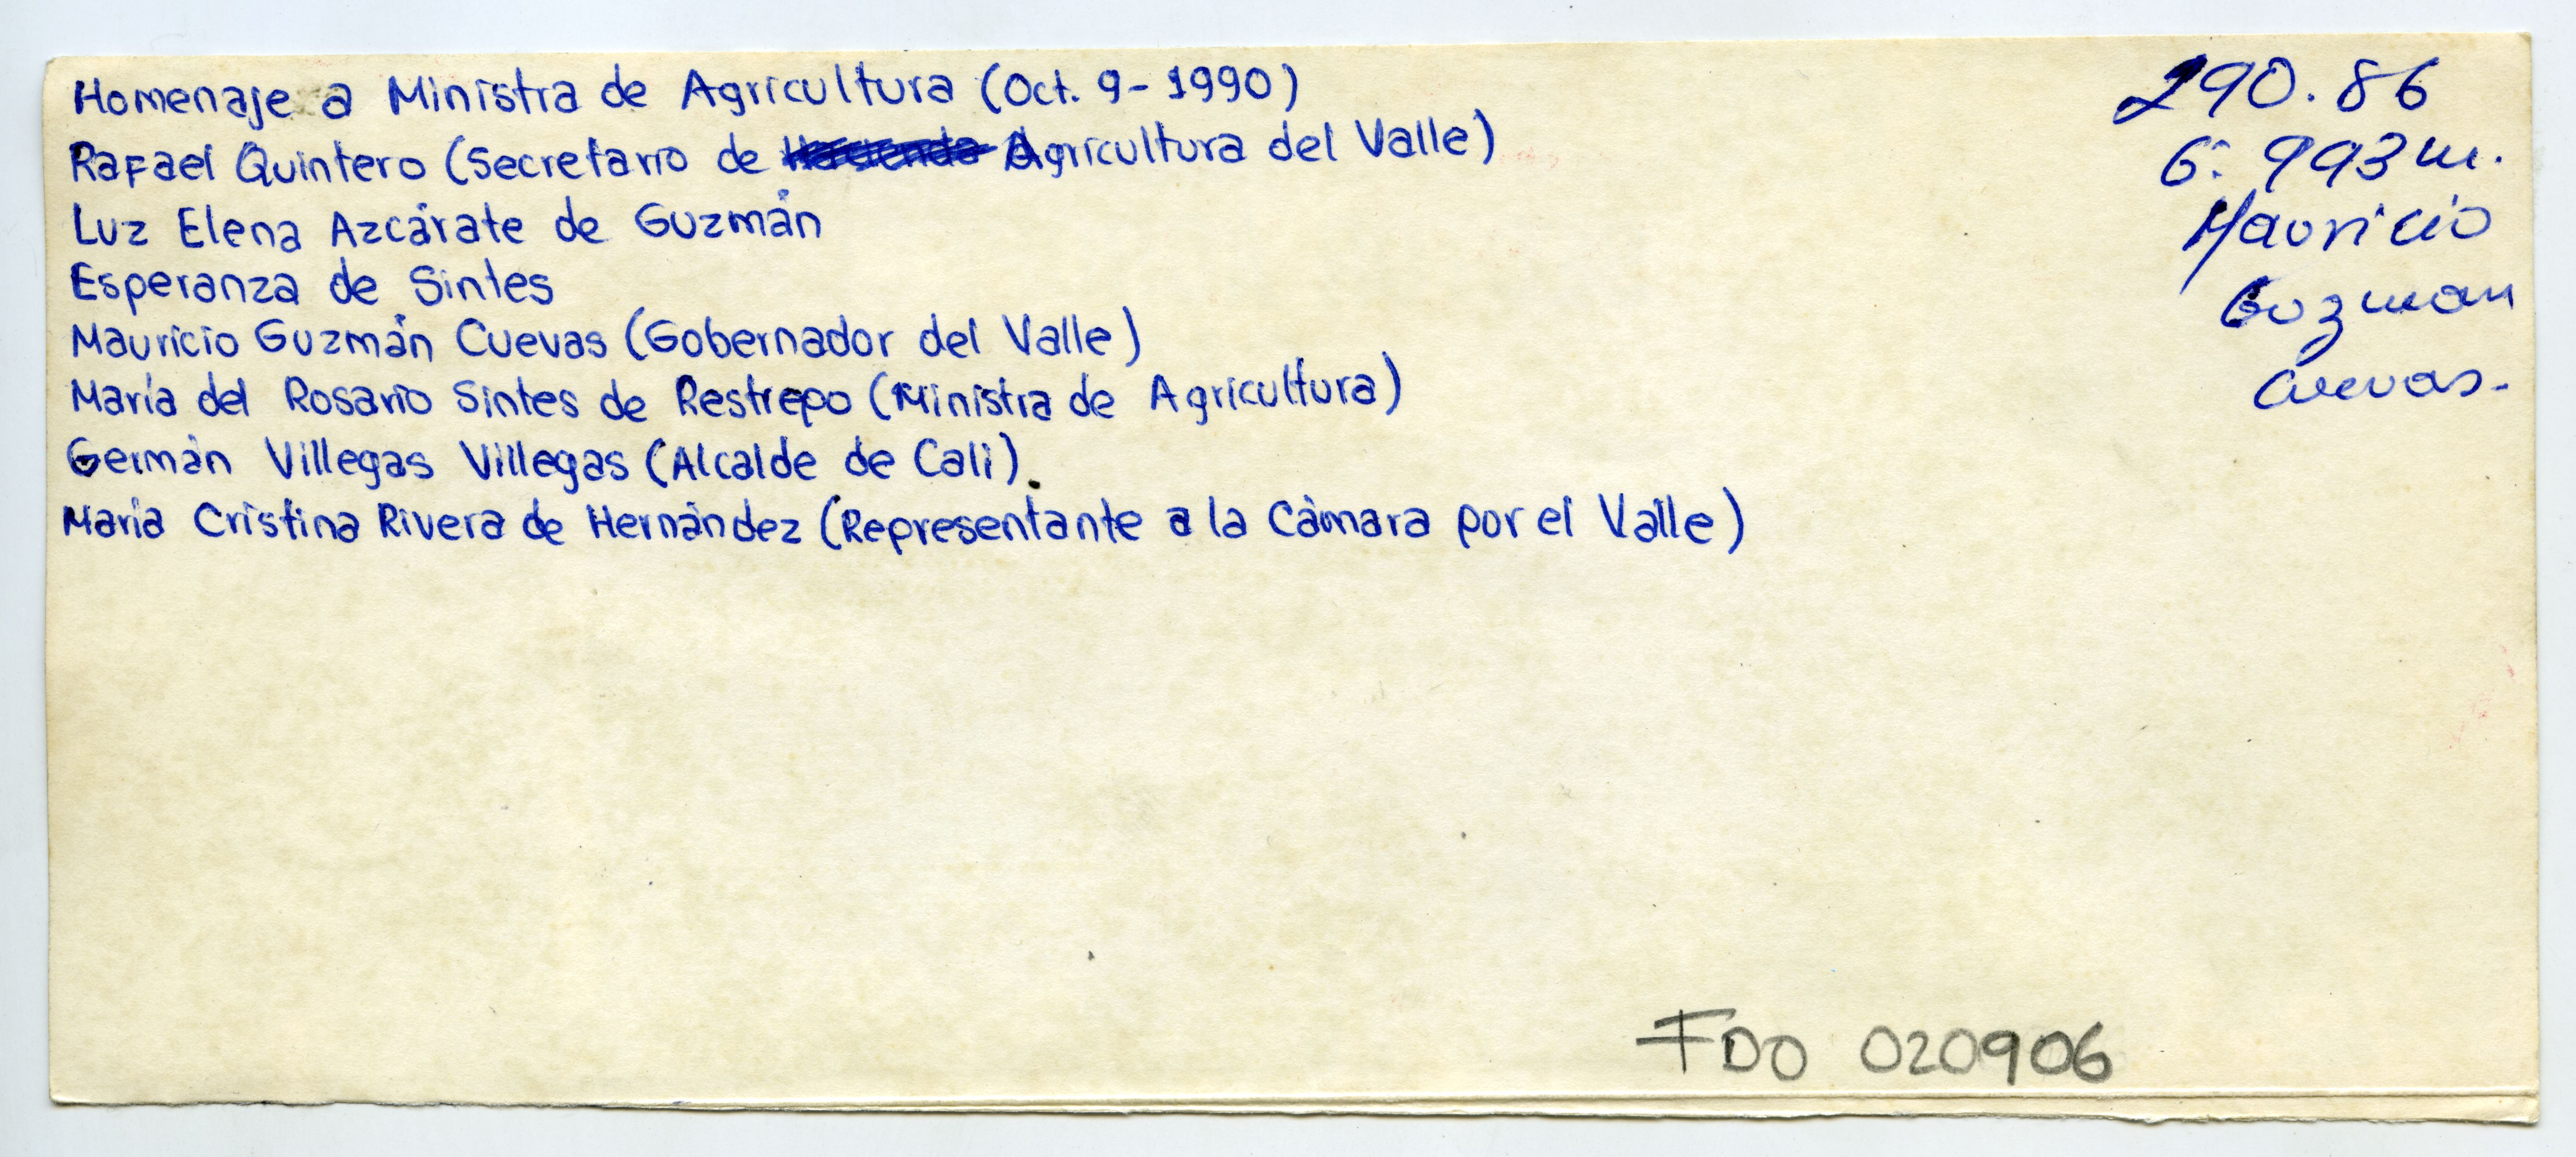 Homenaje a Ministra de Agricultura (Oct. 9-1990)
Rafael Quintero (Secretario de Hacienda Agricultura del Valle)
Luz Elena Azcárate de Guzmán
Esperanza de Sintes
Mauricio Guzmán Cuevas (Gobernador del Valle)
María del Rosario Sintes de Restrepo (Ministra de Agricultura)
Germán Villegas Villegas (Alcalde de Cali).
María Cristina Rivera de Hernández (Representante a la Cámara por el Valle)
290.86
6: 993 m.
Mauricio
Guzman
Cuevas-
FDO 020906